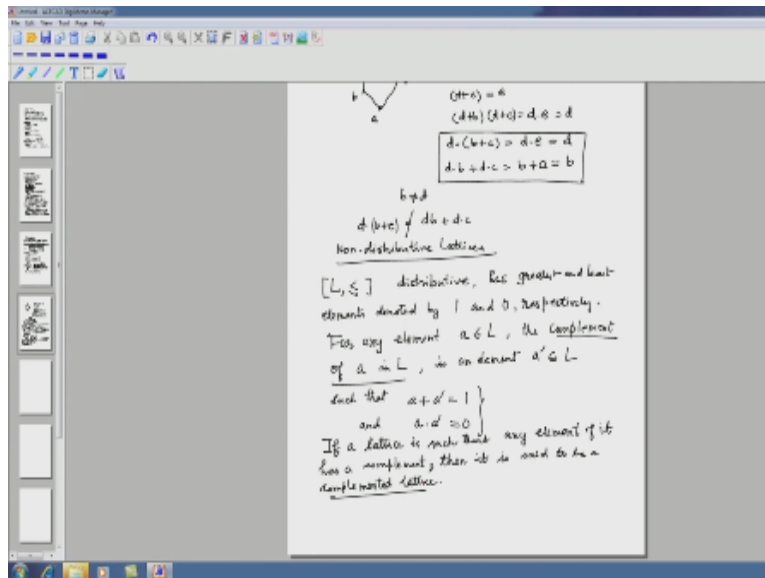 File Edit View Tool Page Help
b
a
(d+c) = e
(d+b)(d+c) = d·e = d
d·(b+c) = d·e = d
d·b + d·c = b + a = b
b≠d
d·(b+c) ≠ db + d·c
Non-distributive Lattices
[L, ≤] distributive, has greatest and least
elements denoted by 1 and 0, respectively.
For any element a ∈ L, the complement
of a in L, is an element a' ∈ L
such that a + a' = 1
and a·a' = 0
If a lattice is such that any element of it
has a complement, then it is said to be a
complemented lattice.